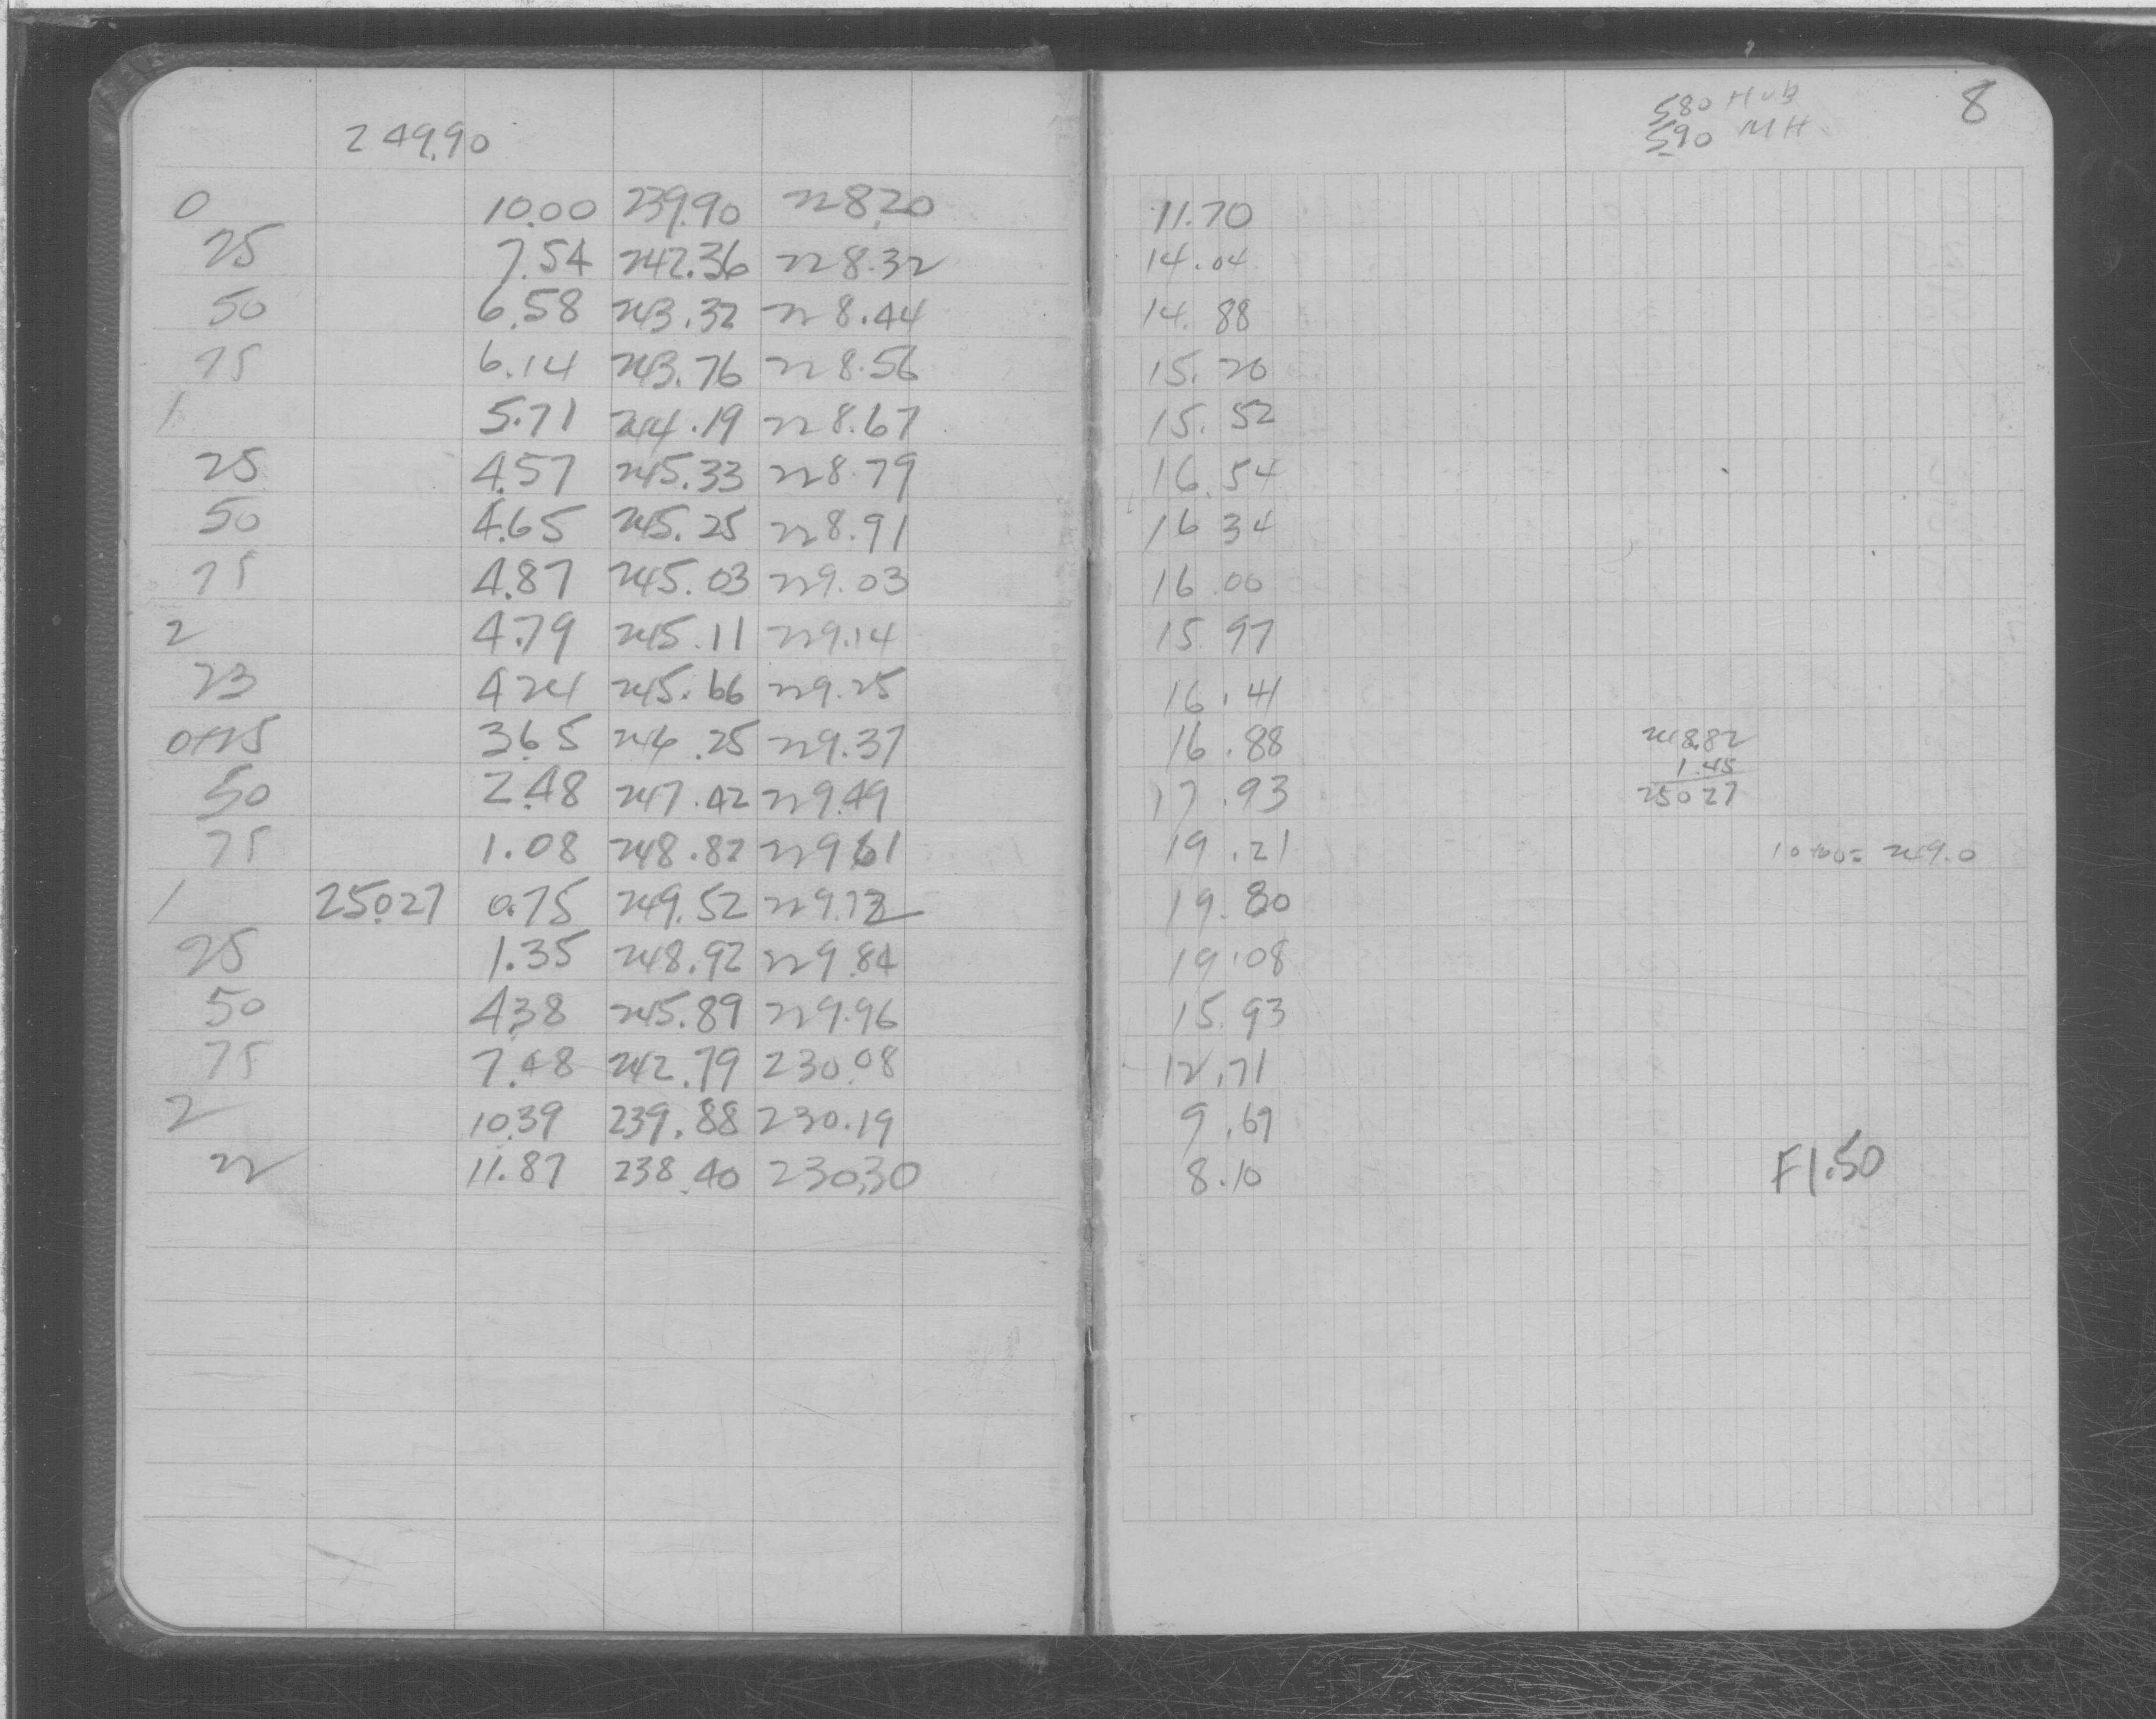 580 Hub 8
249.90 590 MH
0 10.00 239.90 228.20 11.70
25 7.54 242.36 228.32 14.04
50 6.58 243.32 228.44 14.88
75 6.14 243.76 228.56 15.20
1 5.71 244.19 228.67 15.52
25 4.57 245.33 228.79 16.54
50 4.65 245.25 228.91 16 34
75 4.87 245.03 229.03 16.00
2 4.79 245.11 229.14 15.97
23 4 24 245.66 229.25 16.41
0+25 3.65 246.25 229.37 16.88 248.82
50 2.48 247.42 229.49 17.93 1.45
25027
75 1.08 248.82 229.61 19.21 10+00= 249.0
1 250.27 0.75 249.52 229.72 19.80
25 1.35 248.92 229.84 19.08
50 4.38 245.89 229.96 15.93
75 7.48 242.79 230.08 12.71
2 10.39 239.88 230.19 9.69
22 11.87 238.40 230.30 8.10 F1.50